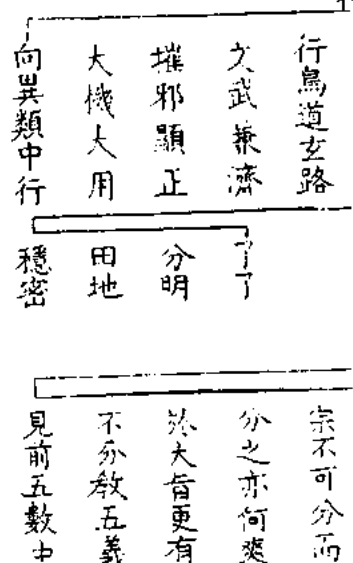 行鳥道玄路
文武兼濟
摧邪顯正
大機大用
向異類中行
了了
分明
田地
穩密
宗不可分而
分之亦何爽
於大旨更有
不分教五義
見前五數中